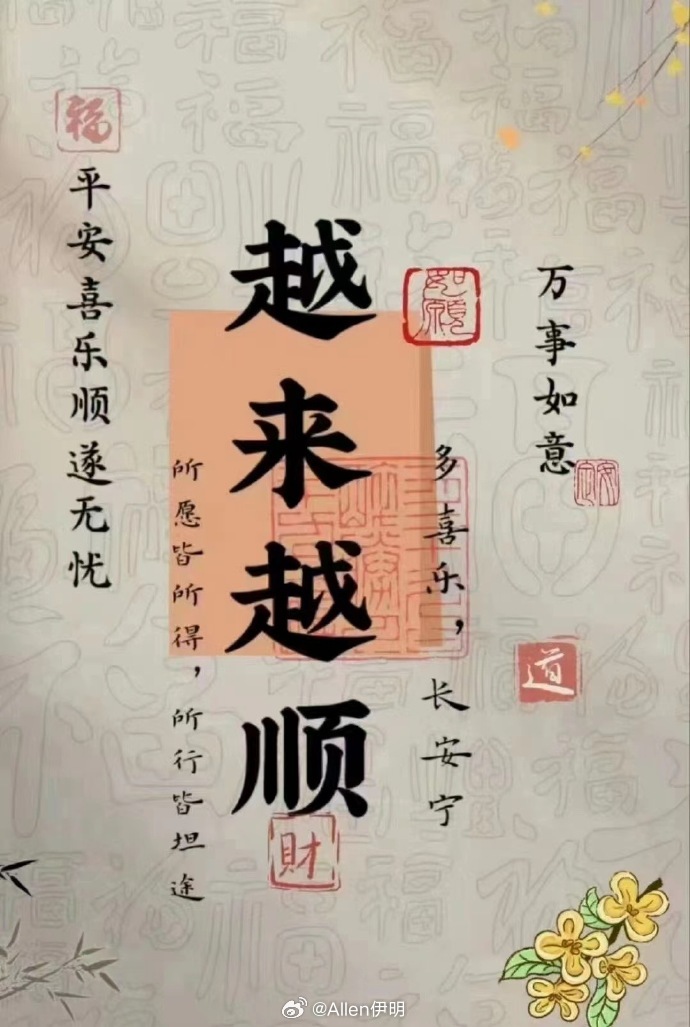 福
万事如意
安
如愿
多喜乐，长安宁
道
越来越顺
財
所愿皆所得，所行皆坦途
平安喜乐顺遂无忧
@Allen伊明